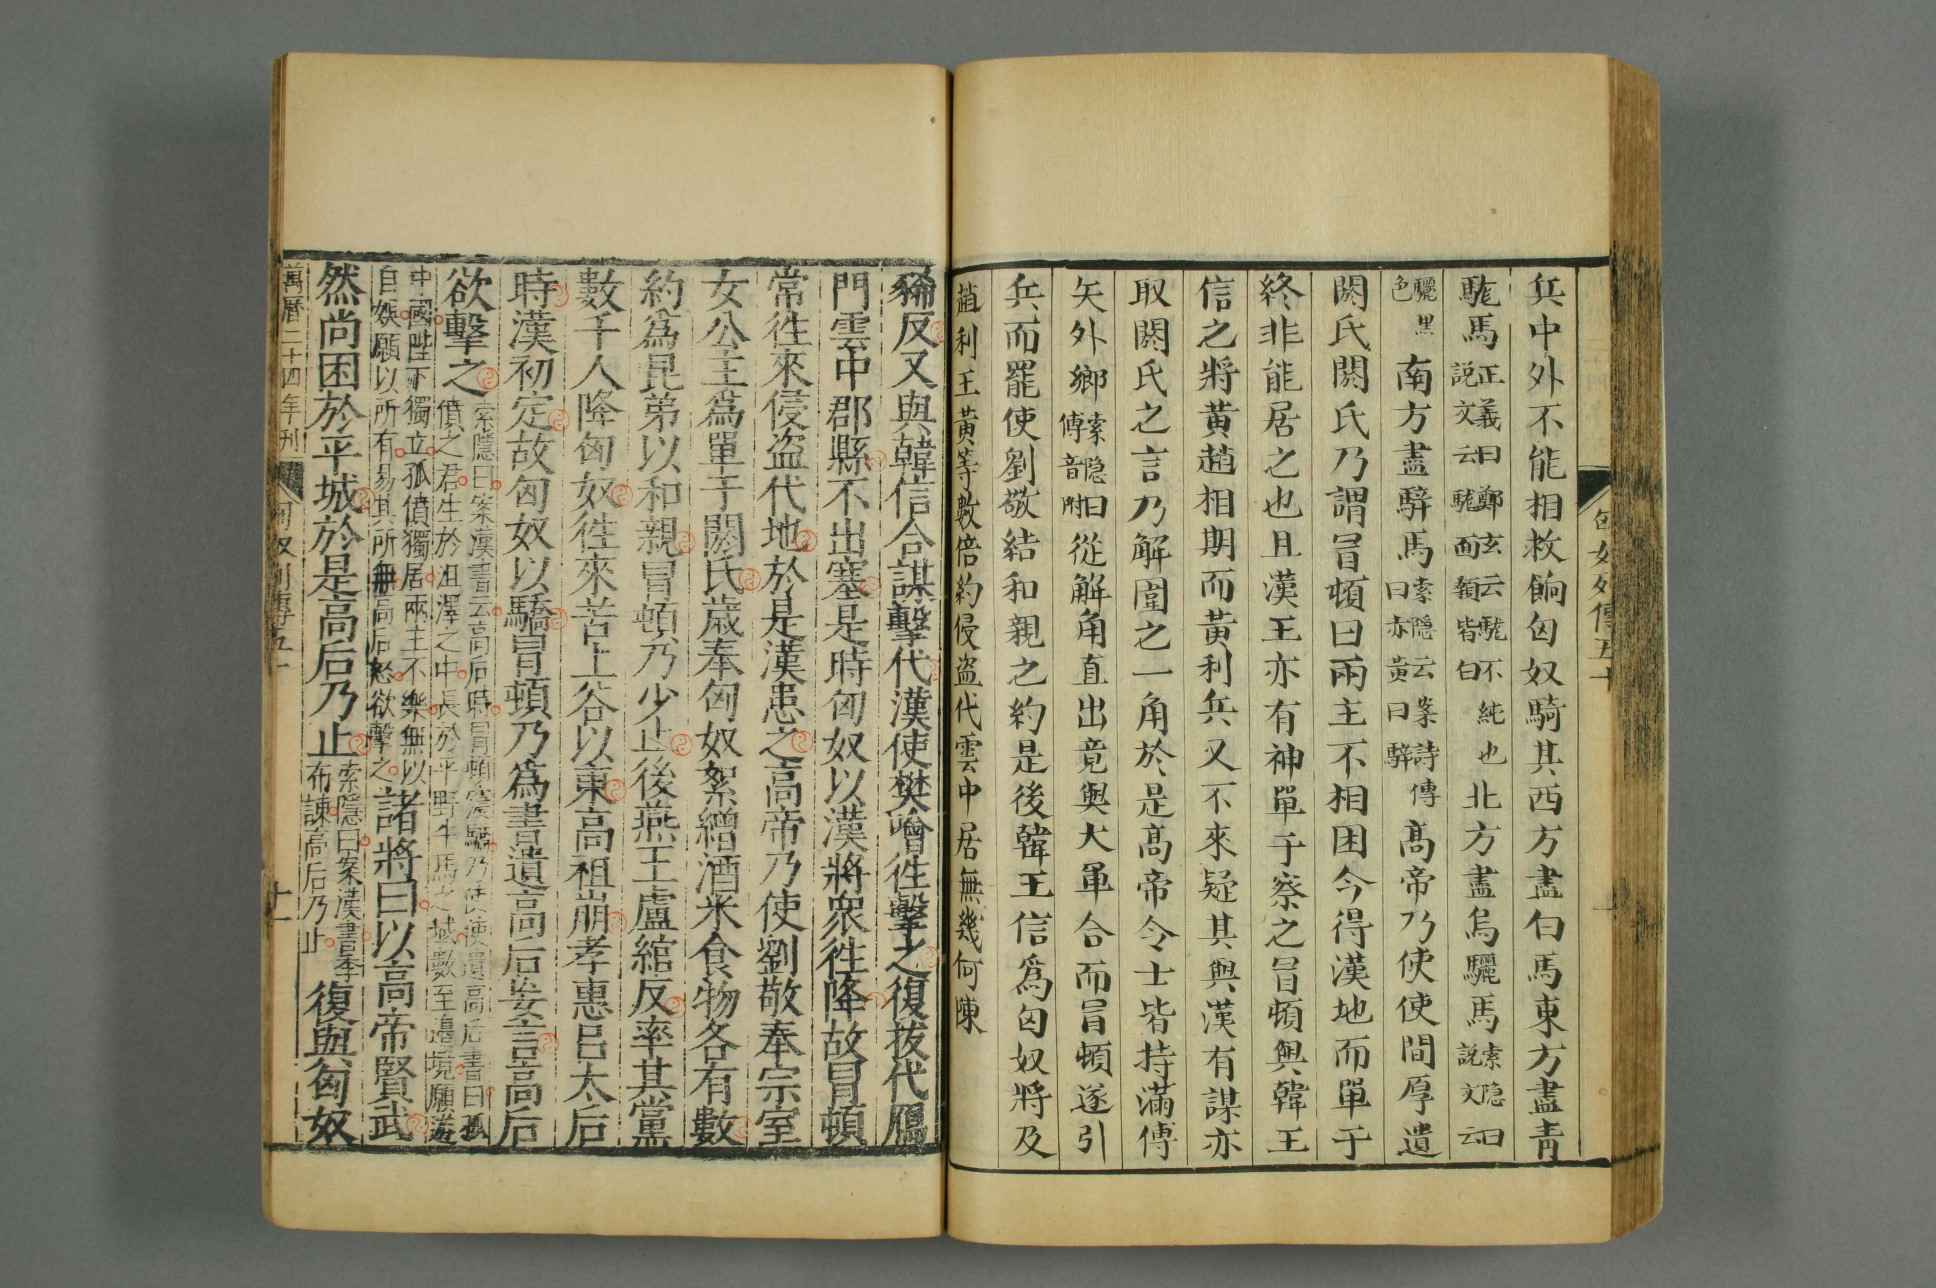 匈奴列傳五十
兵中外不能相救餉匈奴騎其西方盡白馬東方盡青
駹馬正義曰鄭玄云駹不純也說文云駹面顙皆白北方盡烏驪馬索隱曰說文云
驪黑色南方盡騂馬索隱云案詩傳曰赤黃曰騂高帝乃使使間厚遺
閼氏閼氏乃謂冒頓曰兩主不相困今得漢地而單于
終非能居之也且漢王亦有神單于察之冒頓與韓王
信之將黃趙相期而黃利兵又不來疑其與漢有謀亦
取閼氏之言乃解圍之一角於是高帝令士皆持滿傅
矢外鄉索隱曰傅音附從解角直出竟與大軍合而冒頓遂引
兵而罷使劉敬結和親之約是後韓王信爲匈奴將及
趙利王黃等數倍約侵盜代雲中居無幾何陳
豨反又與韓信合謀擊代漢使樊噲往擊之復拔代鴈
門雲中郡縣不出塞是時匈奴以漢將衆往降故冒頓
常往來侵盜代地於是漢患之高帝乃使劉敬奉宗室
女公主爲單于閼氏歲奉匈奴絮繒酒米食物各有數
約爲昆弟以和親冒頓乃少止後燕王盧綰反率其黨
數千人降匈奴往來苦上谷以東高祖崩孝惠呂太后
時漢初定故匈奴以驕冒頓乃爲書遺高后妄言高后
欲擊之索隱曰案漢書云高后時冒頓寖驕乃使使遺高后書曰孤僨之君生於沮澤之中長於平野牛馬之域數至邊境願遊
中國陛下獨立孤僨獨居兩主不樂無以自娛願以所有易其所無高后怒欲擊之諸將曰以高帝賢武
然尚困於平城於是高后乃止索隱曰案漢書季布諫高后乃止復與匈奴
萬曆二十四年刊 匈奴列傳五十 十一